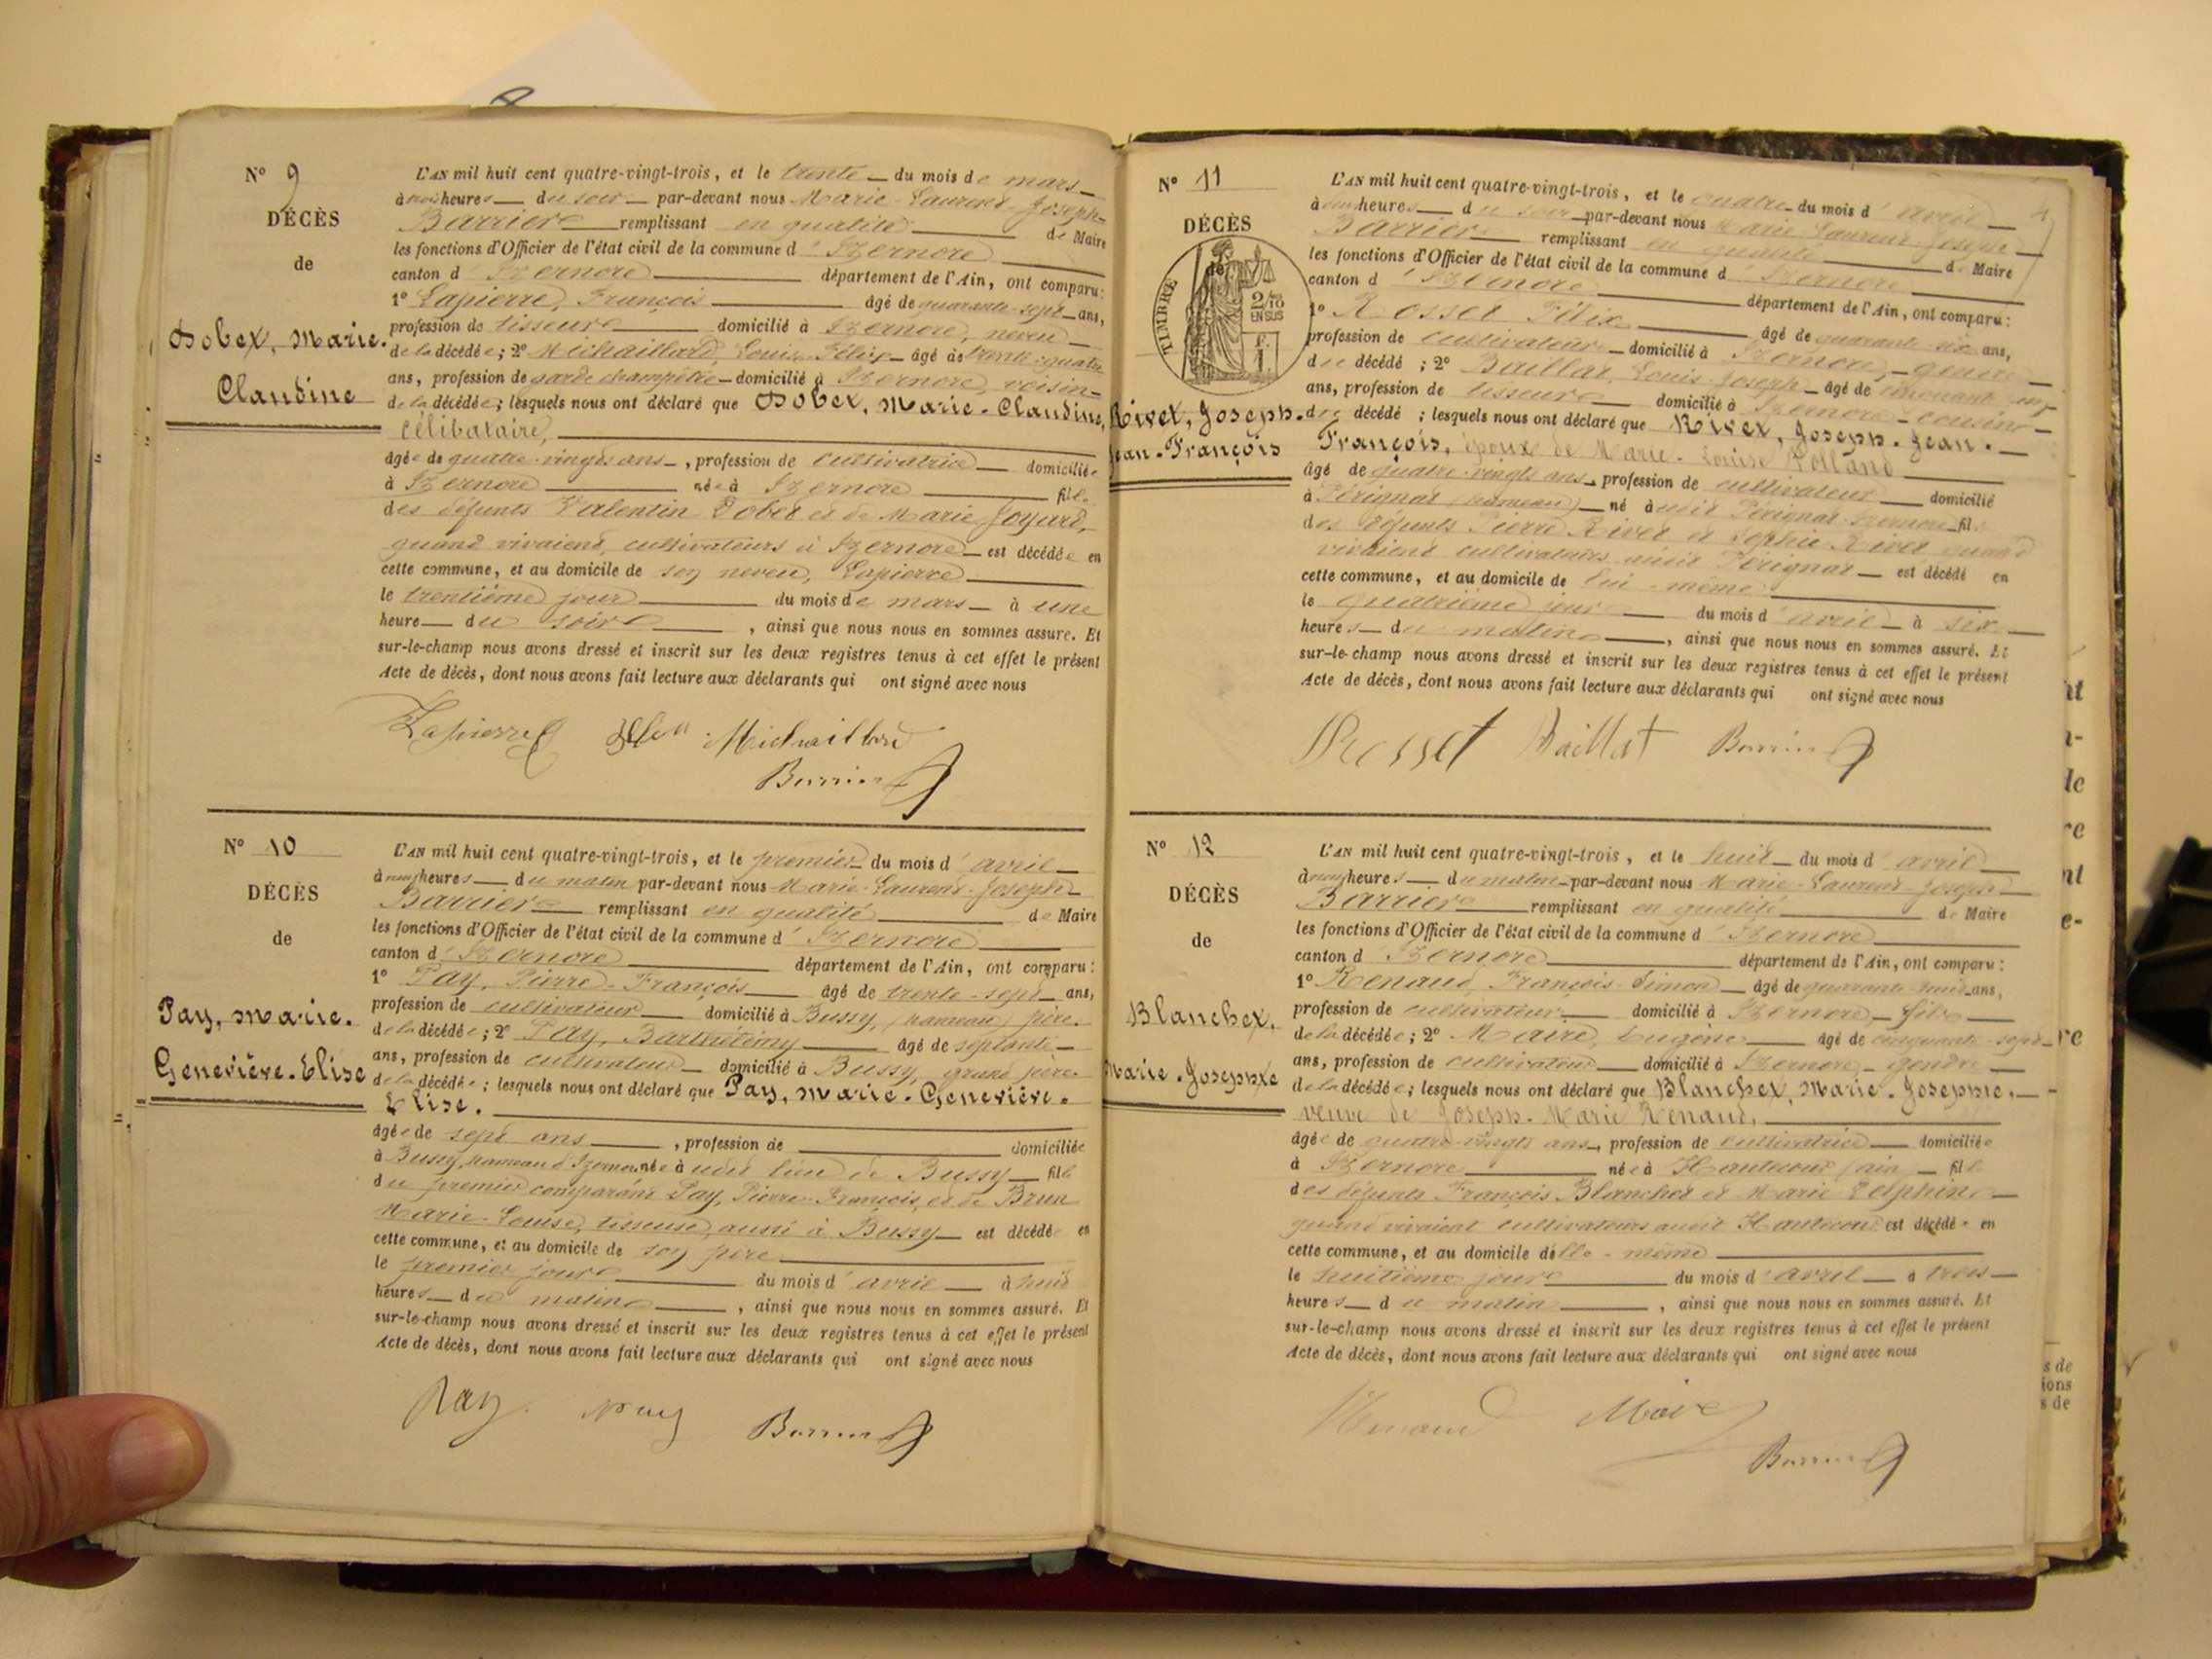 Nº 9
DÉCÈS
de
Dobex, Marie.
Claudine
L'AN mil huit cent quatre-vingt-trois, et le trente du mois de mars
à heures du soir par-devant nous Marie-Laurent-Joseph
Barrier remplissant en qualité de Maire
les fonctions d'Officier de l'état civil de la commune d'Izernore
canton d'Izernore département de l'Ain, ont comparu:
1º Lapierre, François âgé de quarante-sept ans,
profession de tisseur domicilié à Izernore, neveu
de la décédée; 2º Michaillard, Louis-Félix âgé de trente-quatre
ans, profession de garde champêtre domicilié à Izernore, voisin
de la décédée; lesquels nous ont déclaré que Dobex, Marie-Claudine,
célibataire,
âgée de quatre-vingts ans, profession de cultivatrice domiciliée
à Izernore née à Izernore fille
des défunts Valentin Dobex et de Marie Joyard,
quand vivaient, cultivateurs à Izernore est décédée en
cette commune, et au domicile de son neveu, Lapierre
le trentième jour du mois de mars à une
heure du soir, ainsi que nous nous en sommes assuré. Et
sur-le-champ nous avons dressé et inscrit sur les deux registres tenus à cet effet le présent
Acte de décès, dont nous avons fait lecture aux déclarants qui ont signé avec nous
Lapierre Michaillard
Barrier
Nº 10
DÉCÈS
de
Pay, Marie.
Geneviève-Elise
L'AN mil huit cent quatre-vingt-trois, et le premier du mois d'avril
à neuf heures du matin par-devant nous Marie-Laurent-Joseph
Barrier remplissant en qualité de Maire
les fonctions d'Officier de l'état civil de la commune d'Izernore
canton d'Izernore département de l'Ain, ont comparu:
1º Pay, Pierre-François âgé de trente-sept ans,
profession de cultivateur domicilié à Bussy, (hameau) père
de la décédée; 2º Pay, Barthélemy âgé de septante
ans, profession de cultivateur domicilié à Bussy, grand père
de la décédée; lesquels nous ont déclaré que Pay, Marie-Geneviève-
Elise.
âgée de sept ans, profession de domiciliée
à Bussy, hameau d'Izernore née à udit lieu de Bussy fille
du premier comparant Pay, Pierre-François, et de Brun
Marie-Louise, tisseuse, aussi à Bussy est décédée en
cette commune, et au domicile de son père
le premier jour du mois d'avril à huit
heures du matin, ainsi que nous nous en sommes assuré. Et
sur-le-champ nous avons dressé et inscrit sur les deux registres tenus à cet effet le présent
Acte de décès, dont nous avons fait lecture aux déclarants qui ont signé avec nous
Pay Pay Barrier
Nº 11
DÉCÈS
de
TIMBRE
2/10 EN SUS
Rivex, Joseph.
Jean-François
L'AN mil huit cent quatre-vingt-trois, et le quatre du mois d'avril
à heures du soir par-devant nous Marie-Laurent-Joseph
Barrier remplissant en qualité de Maire
les fonctions d'Officier de l'état civil de la commune d'Izernore
canton d'Izernore département de l'Ain, ont comparu:
1º Rosset Félix âgé de quarante-six ans,
profession de cultivateur domicilié à Izernore, gendre
du décédé; 2º Baillat, Louis-Joseph âgé de cinquante
ans, profession de tisseur domicilié à Izernore cousin
du décédé; lesquels nous ont déclaré que Rivex, Joseph-Jean-
François, époux de Marie-Louise Rolland
âgé de quatre-vingts ans, profession de cultivateur domicilié
à Pérignat (hameau) né audit Pérignat-Izernore fils
des défunts Pierre Rivex et Sophie Rivex quand
vivaient cultivateurs audit Pérignat est décédé en
cette commune, et au domicile de lui-même
le quatrième jour du mois d'avril à six
heures du matin, ainsi que nous nous en sommes assuré. Et
sur-le-champ nous avons dressé et inscrit sur les deux registres tenus à cet effet le présent
Acte de décès, dont nous avons fait lecture aux déclarants qui ont signé avec nous
Rosset Baillat Barrier
Nº 12
DÉCÈS
de
Blanchex,
Marie-Josephe
L'AN mil huit cent quatre-vingt-trois, et le huit du mois d'avril
à neuf heures du matin par-devant nous Marie-Laurent-Joseph
Barrier remplissant en qualité de Maire
les fonctions d'Officier de l'état civil de la commune d'Izernore
canton d'Izernore département de l'Ain, ont comparu:
1º Renaud, François-Simon âgé de quarante-huit ans,
profession de cultivateur domicilié à Izernore, fils
de la décédée; 2º Maire, Eugène âgé de cinquante-sept
ans, profession de cultivateur domicilié à Izernore, gendre
de la décédée; lesquels nous ont déclaré que Blanchex, Marie-Josephe,
veuve de Joseph-Marie Renaud,
âgée de quatre-vingts ans, profession de cultivatrice domiciliée
à Izernore née à Hautecour (ain) fille
des défunts François Blanchex et Marie Delphine
quand vivaient cultivateurs audit Hautecour est décédée en
cette commune, et au domicile d'elle-même
le huitième jour du mois d'avril à trois
heures du matin, ainsi que nous nous en sommes assuré. Et
sur-le-champ nous avons dressé et inscrit sur les deux registres tenus à cet effet le présent
Acte de décès, dont nous avons fait lecture aux déclarants qui ont signé avec nous
Renaud Maire
Barrier